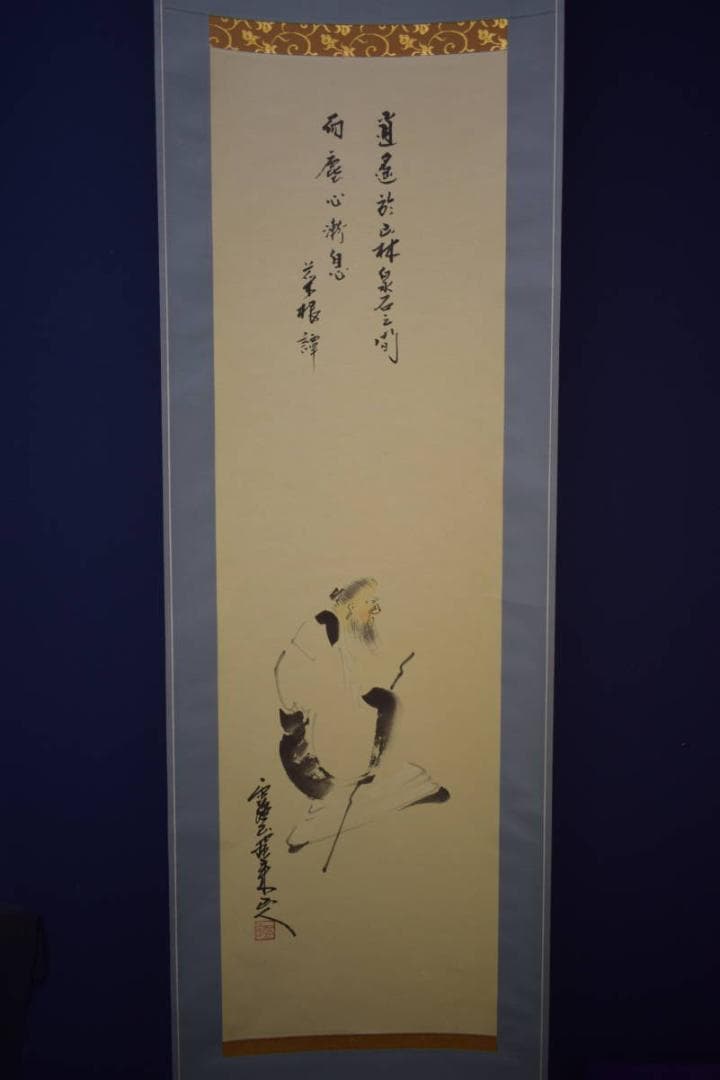 逍遙於山林泉石之間
而塵心漸息
菜根譚
山人